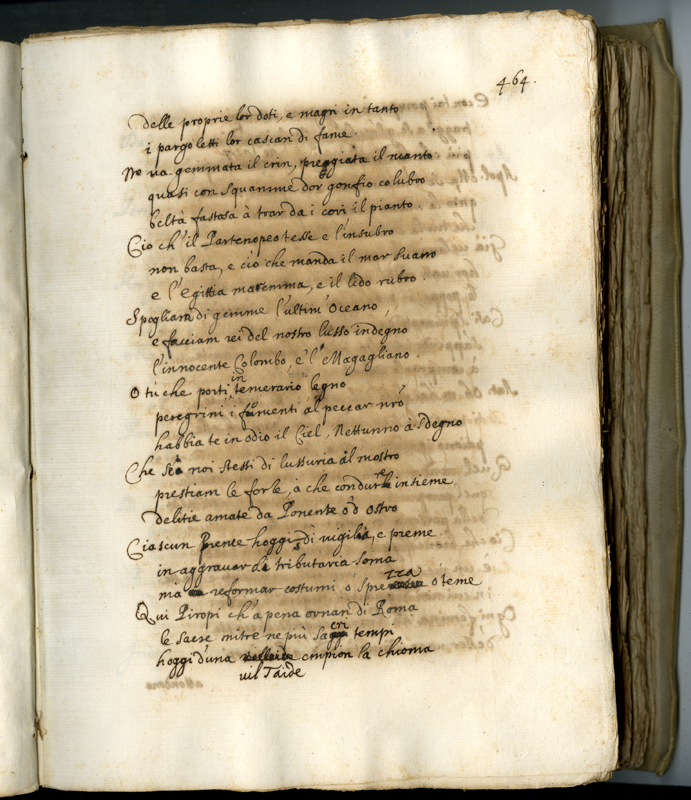 464.
delle proprie lor doti, e magri in tanto
i pargoletti lor cascan di fame.
Ne va gemmata il crin, preggiata il manto
quasi con squamme d'or gonfio colubro
beltà fastosa à trar da i covi il pianto.
Ciò ch'il Partenopeo tesse e l'insubro
non basta, e ciò che manda il mar
e l'Egittia maremma, e il lido rubro.
Spogliam di gemme l'ultim'Oceano,
e facciam rei del nostro lusso indegno
l'innocente Colombo, e'l Magagliano.
O tù che porti in temerario legno
peregrini i al peccar nr̃o
habbia te in odio il Ciel, Nettunno à sdegno
Che noi stessi di lussuria al mostro
prestiam le forze, à che condur le insieme
delitie amate da Ponente ò d'ostro
Ciascun hoggi di vigilia, e preme
in aggravar di tributaria soma
mà reformar costumi ò sprezza ò teme
Qui Piropi ch'à pena ornan di Roma
le sacre mitre ne più sacri tempi
hoggi d'una empion la chioma
vil Taide